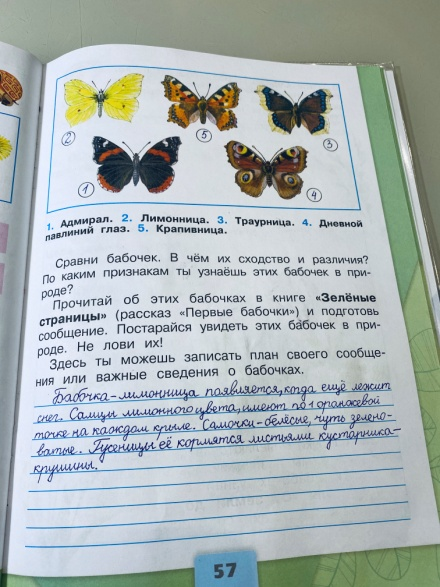 2
5
3
1
4
1. Адмирал. 2. Лимонница. 3. Траурница. 4. Дневной
павлиний глаз. 5. Крапивница.
Сравни бабочек. В чём их сходство и различия?
По каким признакам ты узнаёшь этих бабочек в при-
роде?
Прочитай об этих бабочках в книге «Зелёные
страницы» (рассказ «Первые бабочки») и подготовь
сообщение. Постарайся увидеть этих бабочек в при-
роде. Не лови их!
Здесь ты можешь записать план своего сообще-
ния или важные сведения о бабочках.
Бабочка-лимонница появляется, когда ещё лежит
снег. Самцы лимонного цвета, имеют по 1 оранжевой
точке на каждом крыле. Самочки-белёсые, чуть зелено-
ватые. Гусеницы её кормятся листьями кустарника-
крушины.
57